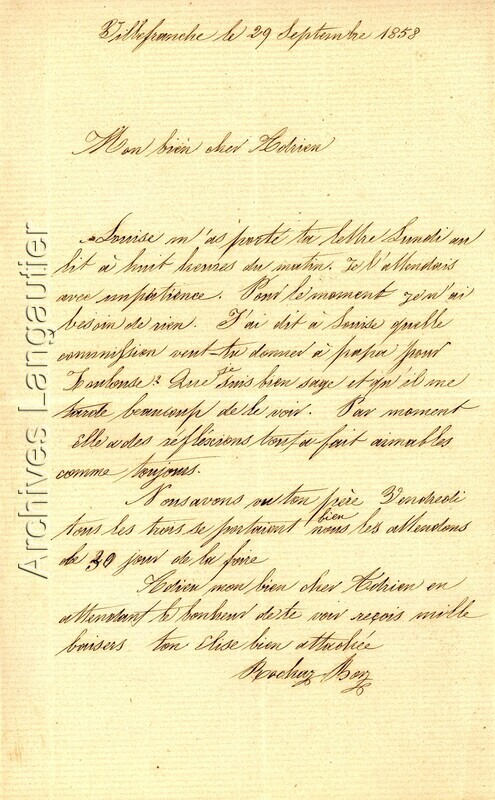 Villefranche le 29 Septembre 1858
Mon bien cher Adrien
Louise m'as porté ta lettre Lundi au
lit à huit heures du matin. Je l'attendais
avec impatience. Pour le moment je n'ai
besoin de rien. J'ai dit à Louise quelle
commission veut-tu donner à papa pour
Toulouse? Que je suis bien sage et qu'il me
tarde beaucoup de le voir. Par moment
Elle a des réflexions tout a fait aimables
comme toujours.
Nous avons vu ton père Vendredi
tous les trois se portaient bien nous les attendons
le 30 jour de la foire
Adieu mon bien cher Adrien en
attendant le bonheur de te voir reçois mille
baisers ton Elise bien attachée
Rochaz Boz
Archives Langautier